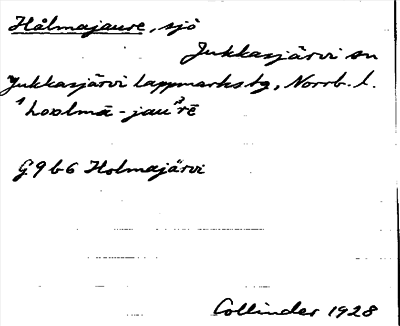 Hålmajaure, sjö
Jukkasjärvi sn
Jukkasjärvi lappmarks tg, Norrb. l.
G 9 b 6 Holmajärvi
Collinder 1928